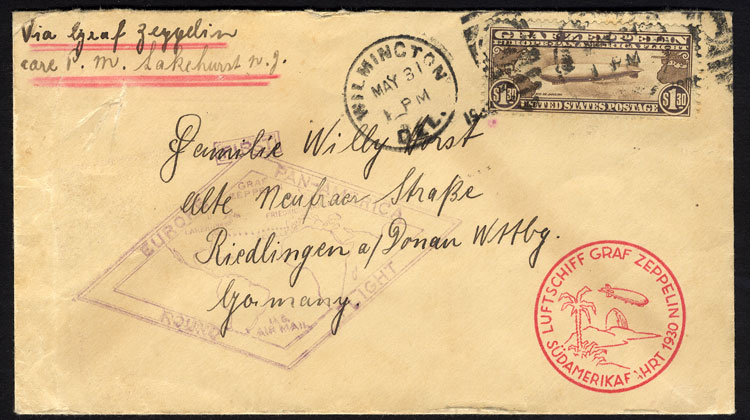 Via Graf Zeppelin
care P. M. Lakehurst N. J.
WILMINGTON
MAY 31
1 PM
DEL.
GRAF ZEPPELIN
$1.30 $1.30
UNITED STATES POSTAGE
Familie Willy Horst
alte Neufraer Straße
Riedlingen a/Donau Wttbg.
Germany.
FIRST
EUROPE PAN-AMERICA
ROUND FLIGHT
GRAF
ZEPPELIN
LAKEHURST
U.S.
AIR MAIL
LUFTSCHIFF GRAF ZEPPELIN
SÜDAMERIKAFAHRT 1930